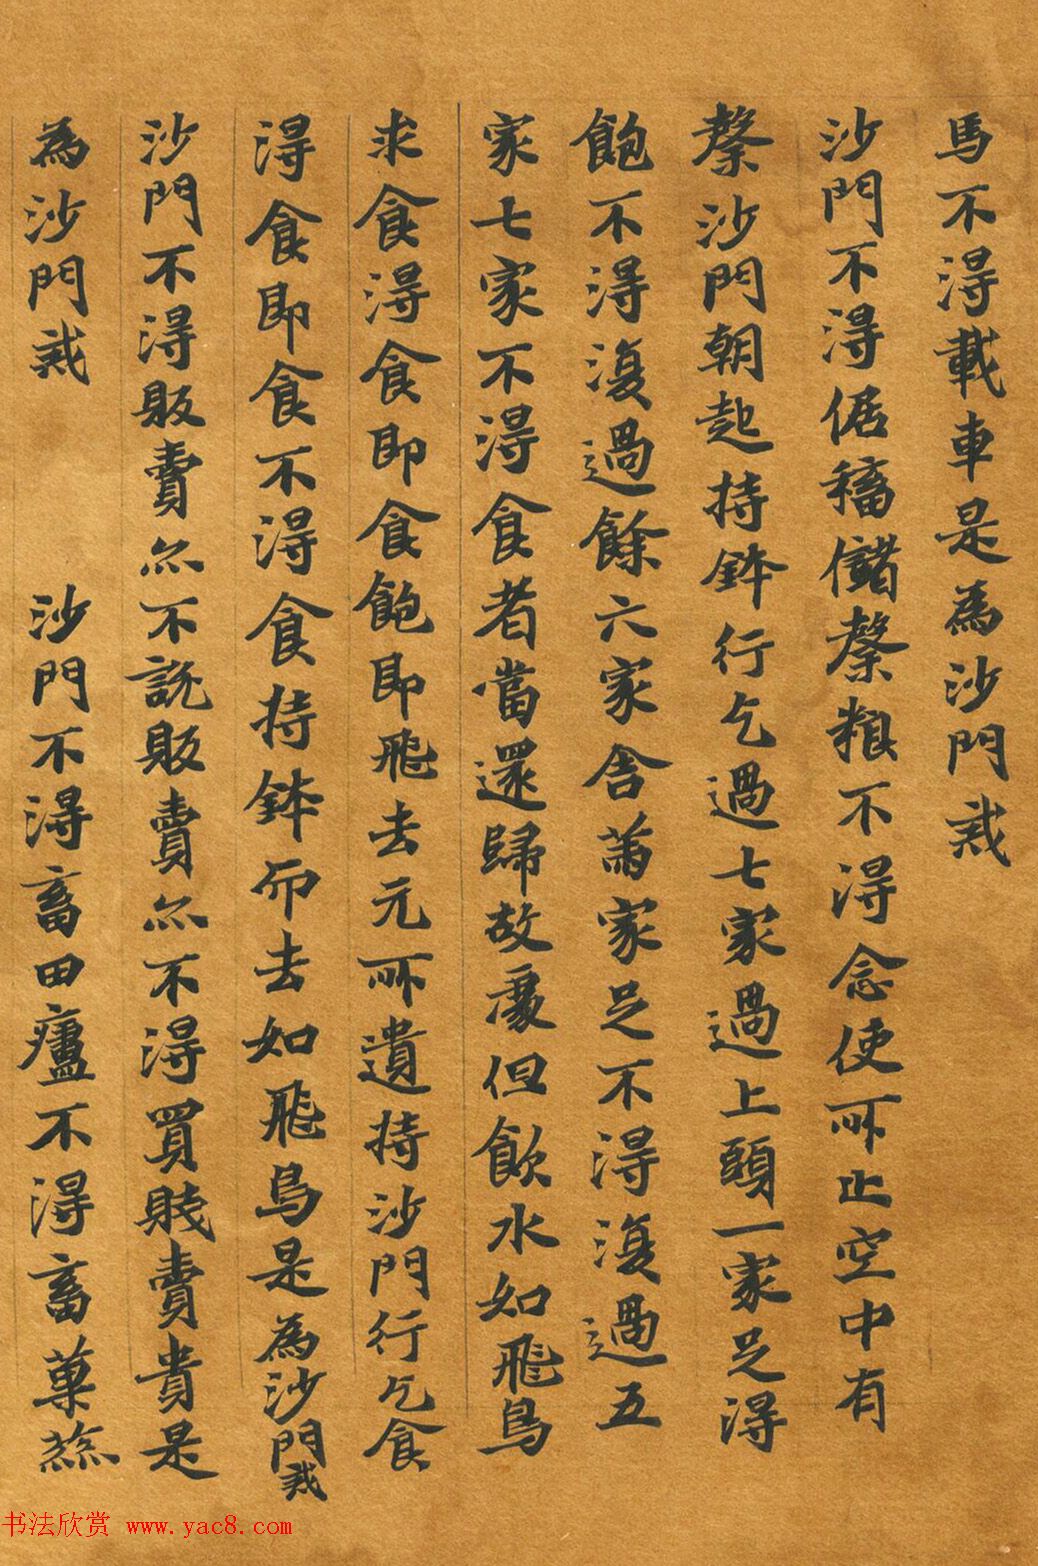 馬不得載車是為沙門戒
沙門不得倨稸儲槃粮不得念使所止空中有
槃沙門朝起持鉢行乞過七家過上頭一家足得
飽不得復過餘六家舍若家足不得復過五
家七家不得食者當還歸故處但飲水如飛鳥
求食得食即食飽即飛去无所遺持沙門行乞食
得食即食不得食持鉢而去如飛鳥是為沙門戒
沙門不得販賣亦不説販賣亦不得買賤賣貴是
為沙門戒 沙門不得畜田廬不得畜菓蓏
书法欣赏 www.yac8.com